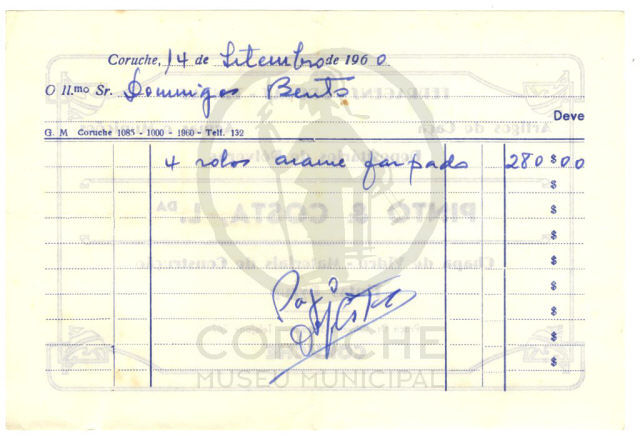 Coruche, 14 de Setembro de 1960
O Il.mo Sr. Domingos Bento
Deve
G. M Coruche 1085 - 1000 - 1960 - Telf. 132
4 rolos arame farpado 280 $ 00
$
$
$
$
$
$
$
$
PINTO & COSTA, L.DA
Chapa de Vidro - Materiais de Construção
CORUCHE
MUSEU MUNICIPAL